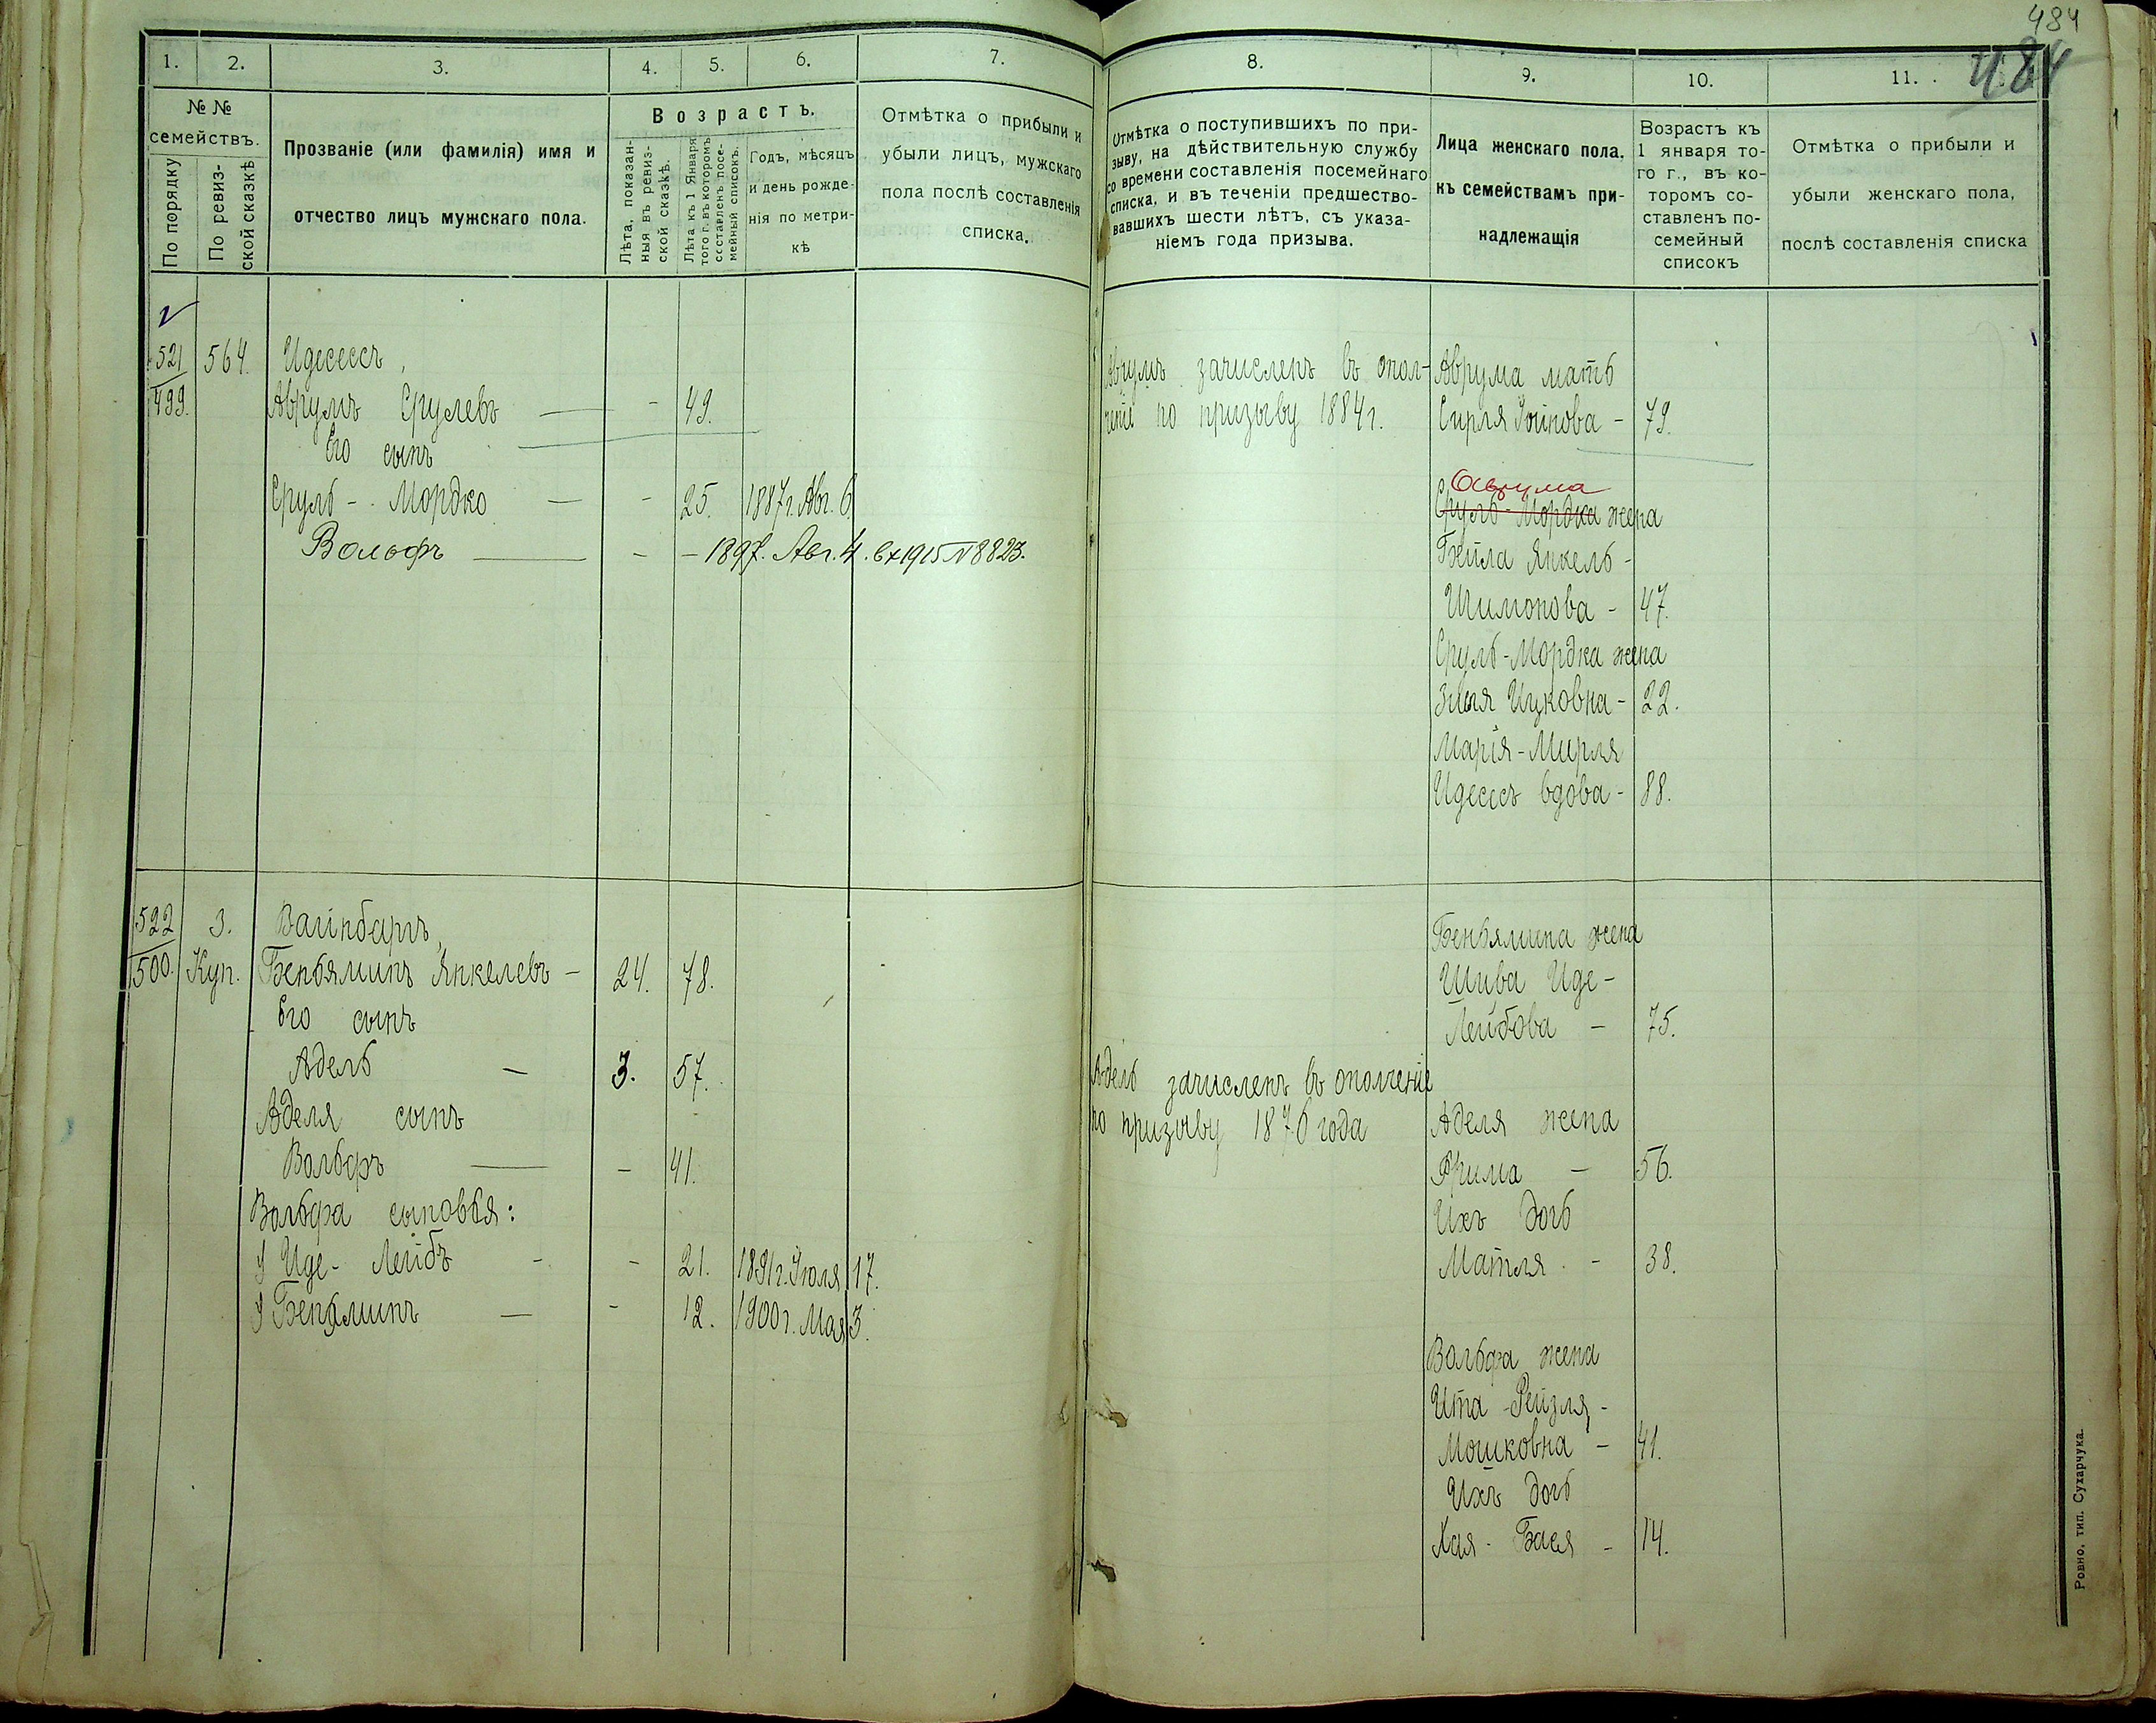 484
484
1.
2.
3.
4.
5.
6.
7.
№ №
семействъ.
По порядку
По ревиз-
ской сказкѣ
Прозваніе (или фамилія) имя и
отчество лицъ мужскаго пола.
Возрастъ.
Лѣта, показан-
ныя въ ревиз-
ской сказкѣ.
Лѣта къ 1 Января
того г. въ которомъ
составленъ посе-
мейный списокъ.
Годъ, мѣсяцъ
и день рожде-
нія по метри-
кѣ
Отмѣтка о прибыли и
убыли лицъ, мужскаго
пола послѣ составленія
списка.
521
499.
564.
Идесесъ,
Аврумъ Срулевъ — - 49.
Его сынъ
Сруль - Мордко — - 25. 1887 г. Авг. 6.
Вольфъ — - - 1897. Авг. 4. вх 1915 N 8823.
522
500.
3.
Куп.
Вайнбергъ,
Беньяминъ Янкелевъ - 24. 78.
Его сынъ
Адель - 3. 57.
Аделя сынъ
Вольфъ — - 41.
Вольфа сыновья:
Иде - Лейбъ - - 21. 1891 г. Іюля 17.
Беньяминъ — - 12. 1900 г. Мая 3.
8.
9.
10.
11.
Отмѣтка о поступившихъ по при-
зыву, на дѣйствительную службу
со времени составленія посемейнаго
списка, и въ теченіи предшество-
вавшихъ шести лѣтъ, съ указа-
ніемъ года призыва.
Лица женскаго пола,
къ семействамъ при-
надлежащія
Возрастъ къ
1 января то-
го г., въ ко-
торомъ со-
ставленъ по-
семейный
списокъ
Отмѣтка о прибыли и
убыли женскаго пола,
послѣ составленія списка
Аврумъ зачисленъ въ опол-
ченіе по призыву 1884 г.
Аврума мать
Сирля Іойнова - 79.
Аврума
Сруль-Мордка жена
Бейла Янкель-
Шимонова - 47.
Сруль-Мордка жена
Зивья Ицковна - 22.
Марія-Мирля
Идессъ вдова - 88.
Беньямина жена
Шива Иде-
Лейбова - 75.
Адель зачисленъ въ ополченіе
по призыву 1876 года
Аделя жена
Фрима - 56.
Ихъ дочь
Матля - 38.
Вольфа жена
Ита - Рейзля -
Мошковна - 41.
Ихъ дочь
Хая - Бася - 14.
Ровно, тип. Сухарчука.